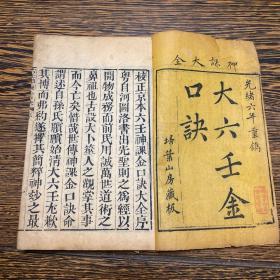 神課大全
光緒六年重鐫
大六壬金
口訣
埽葉山房藏板
校正京本六壬神課金口訣大全序
粤自河圖洛書出先聖則之爲經以
開物成務而前民用誠萬世道術之
鼻祖也古設大卜筮人之觀掌其事
而今亡矣惜哉世傳神課金口訣命
謂述自孫氏臏臏始清大六壬尤歉
其博而弗約遂撰其簡粹神妙之最